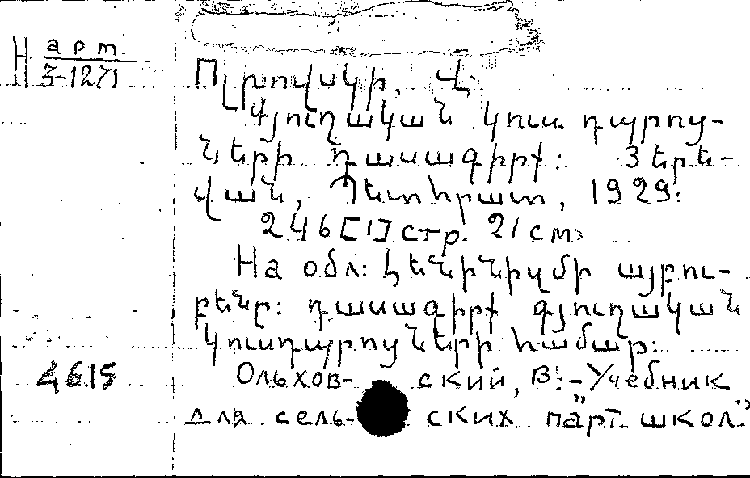 Н арт
3-1271
Ոլխովսկի, Վ.
Գյուղական կուս. դպրոց-
ների դասագիրք: Յերե-
վան, Պետհրատ, 1929:
246 [1] стр. 21 см.
На обл: Լենինիզմի այբու-
բենը: դասագիրք գյուղական
կուսդպրոցների համար:
4615
Ольхов- ский, В.:-Учебник
для сель- ских парт. школ."